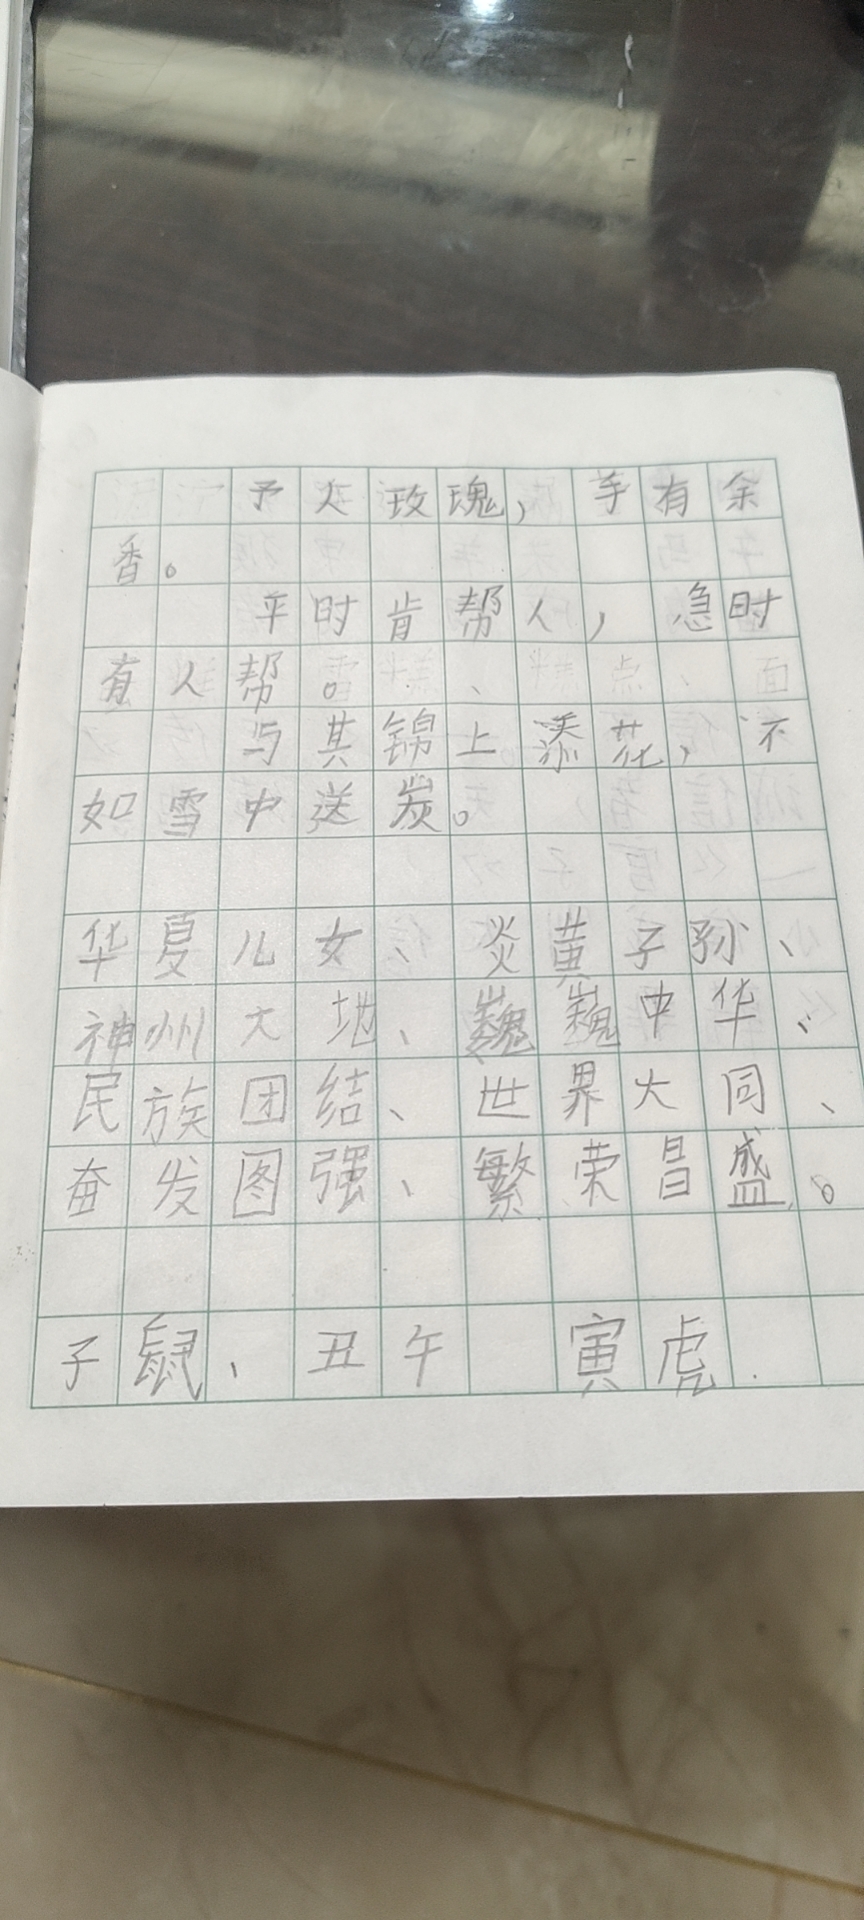 予人玫瑰，手有余
香。
平时肯帮人，急时
有人帮。
与其锦上添花，不
如雪中送炭。
华夏儿女、炎黄子孙、
神州大地、巍巍中华、
民族团结、世界大同、
奋发图强、繁荣昌盛。
子鼠、丑午 寅虎